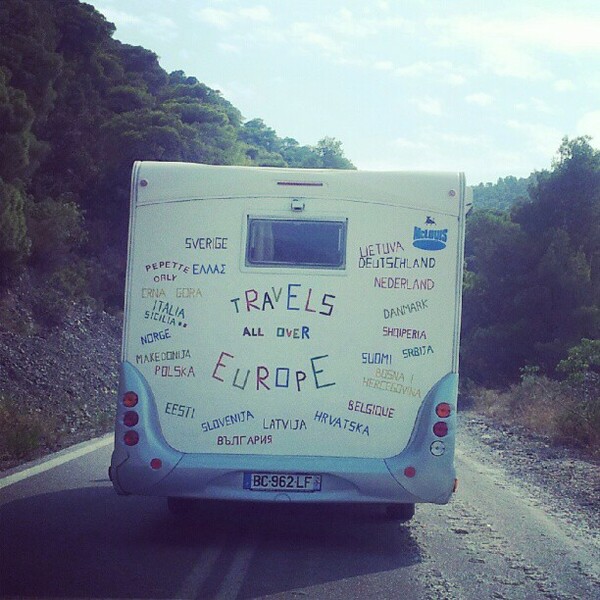 SVERIGE
PEPETTE
ORLY
ΕΛΛΑΣ
CRNA GORA
ITALIA
SICILIA
NORGE
MAKEDONIJA
POLSKA
EESTI
SLOVENIJA
LATVIJA
HRVATSKA
БЪЛГАРИЯ
TRAVELS
ALL OVER
EUROPE
McLOUIS
LIETUVA
DEUTSCHLAND
NEDERLAND
DANMARK
SHQIPERIA
SUOMI
SRBIJA
BOSNA I
HERCEGOVINA
BELGIQUE
BC-962-LF